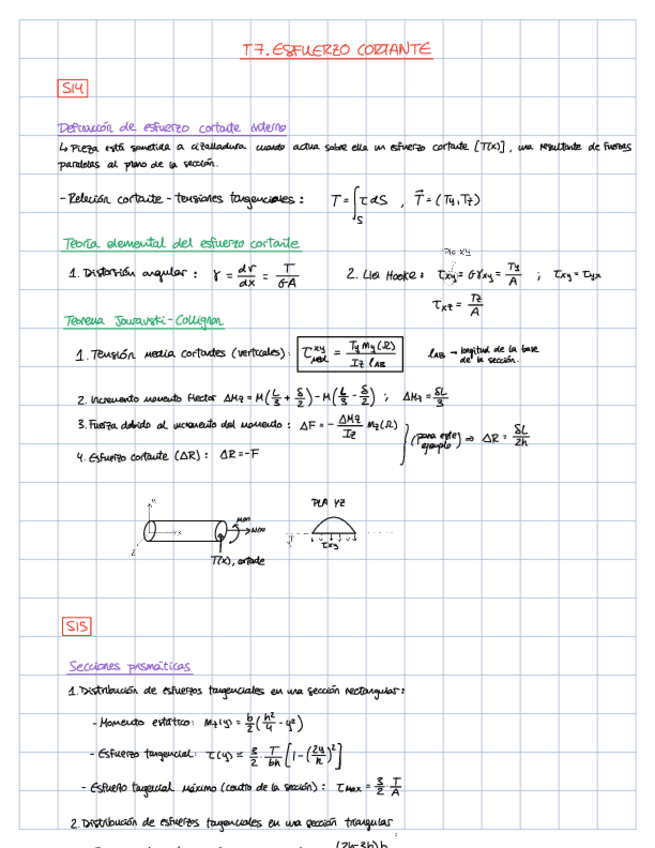 T7. ESFUERZO CORTANTE
S14
Definición de esfuerzo cortante interno
↳ Pieza está sometida a cizalladura cuando actua sobre ella un esfuerzo cortante [T(x)], una resultante de fuerzas
paralelas al plano de la sección.
- Relación cortante - tensiones tangenciales: T = ∫_S τ dS , T⃗ = (Ty, Tz)
Teoría elemental del esfuerzo cortante
1. Distorsión angular: γ = dv/dx = T/(G·A)
2. Llei Hooke: τxy = G γxy = Ty/A ; τxy = τyx
τxz = Tz/A
Teorema Jouravski-Collignon
1. Tensión media cortantes (verticales): τ^xy_med = Ty my(Ω) / (Iz lAB)
lAB → longitud de la base
de la sección.
2. Incremento momento flector ΔMz = M(L/3 + δ/2) - M(L/3 - δ/2) ; ΔMz = δL/3
3. Fuerza debida al incremento del momento: ΔF = - ΔMz/Iz mz(Ω)
4. Esfuerzo cortante (ΔR): ΔR = -F
(para este ejemplo) ⇒ ΔR = δL/2h
PLA YZ
T(x), cortante
τxy
S15
Secciones prismáticas
1. Distribución de esfuerzos tangenciales en una sección rectangular:
- Momento estático: mz(y) = b/2 (h²/4 - y²)
- Esfuerzo tangencial: τ(y) = 3/2 · T/bh [1 - (2y/h)²]
- Esfuerzo tangencial máximo (centro de la sección): τmax = 3/2 · T/A
2. Distribución de esfuerzos tangenciales en una sección triangular